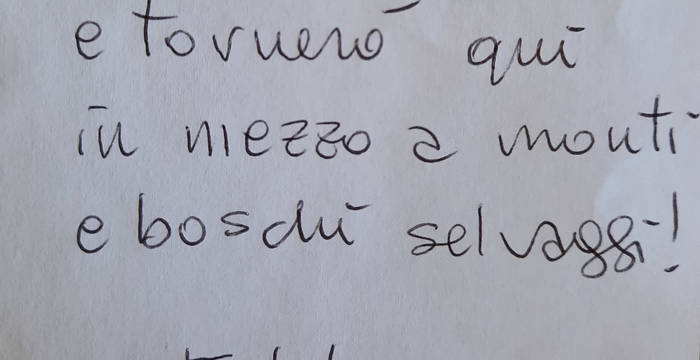 e tornerò qui
in mezzo a monti
e boschi selvaggi!